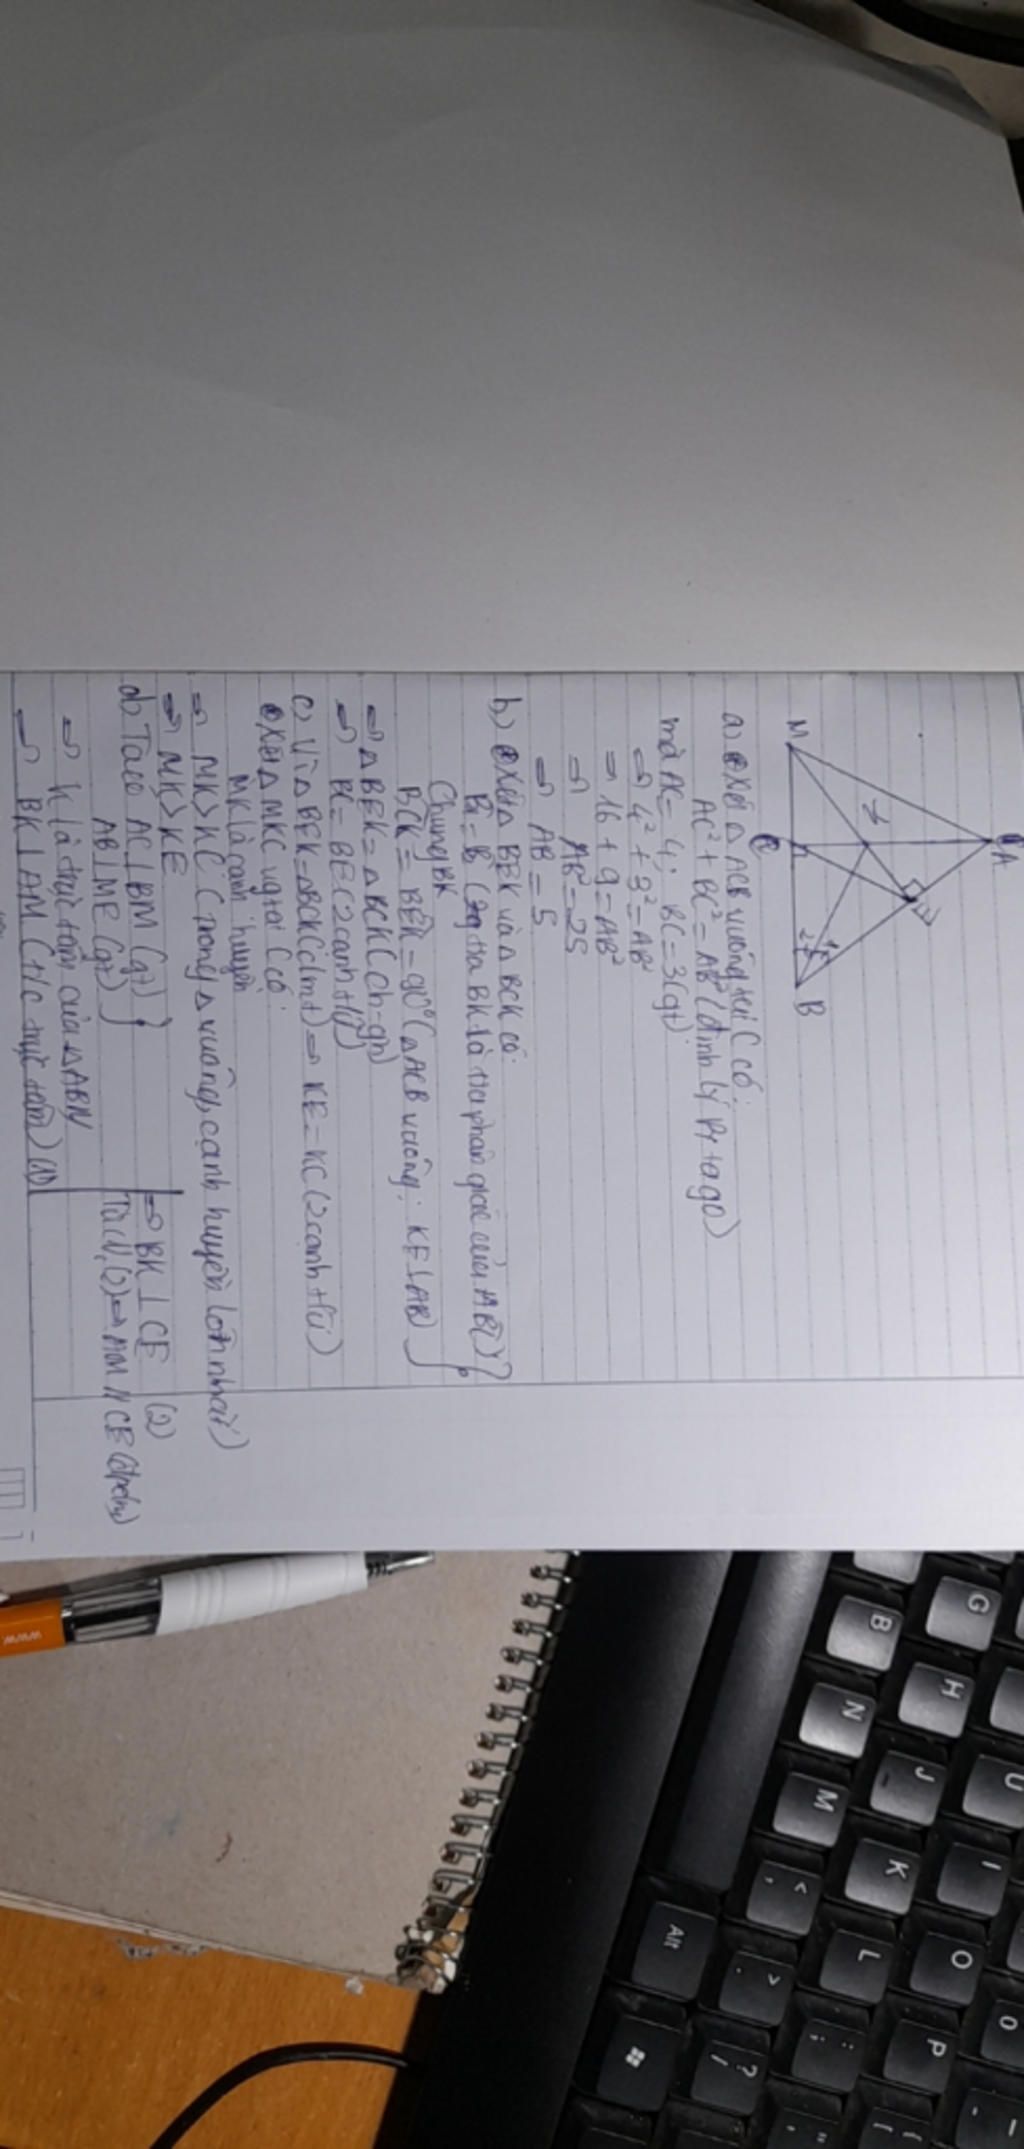 A
E
K
M
C
B
a) Xét △ ACB vuông tại C có:
AC² + BC² = AB² (định lý Pytago)
mà AC = 4; BC = 3 (gt)
⇒ 4² + 3² = AB²
⇒ 16 + 9 = AB²
⇒ AB² = 25
⇒ AB = 5
b) Xét △ BEK và △ BCK có:
B₁ = B₂ ( BK là tia phân giác của ABC) }
Chung BK
BCK = BEK = 90° (△ACB vuông; KE⊥AB)
⇒ △BEK = △BCK (ch-gn)
⇒ BC = BE (2 cạnh t/ứ)
c) Vì △ BEK = △BCK (cmt) ⇒ KE = KC (2 cạnh t/ứ)
Xét △ MKC vg tại C có:
MK là cạnh huyền
⇒ MK > KC (trong △ vuông, cạnh huyền lớn nhất)
⇒ MK > KE
d) Ta có AC ⊥ BM (gt) }
AB ⊥ ME (gt)
⇒ K là trực tâm của △ABN
⇒ BK ⊥ AM (t/c trực tâm) (1)
⇒ BK ⊥ CE (2)
Từ (1), (2) ⇒ AM // CE (đpcm)
G
B
H
N
U
J
M
I
K
< ,
O
L
Alt
> .
P
: ;
? /
www